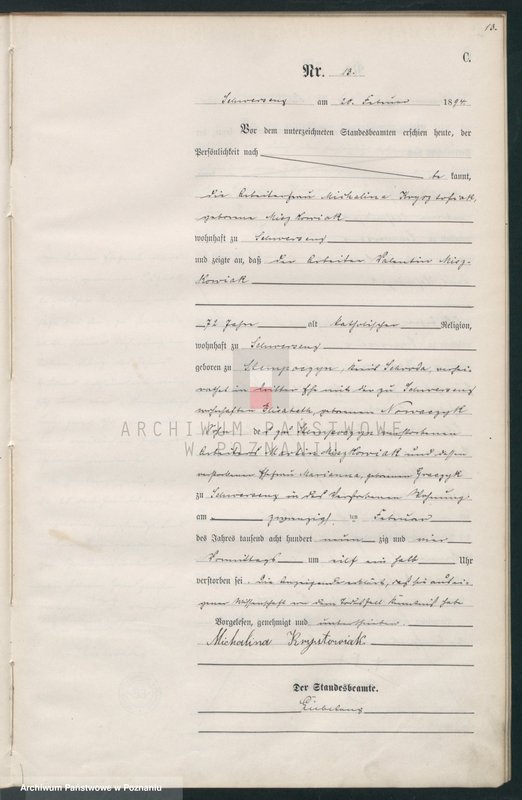 13.
C.
Nr. 13.
Schwersenz am 20. Februar 1894
Vor dem unterzeichneten Standesbeamten erschien heute, der
Persönlichkeit nach
be kannt,
die Arbeiterfrau Michalina Krysztofiak,
geborene Miczkowiak
wohnhaft zu Schwersenz
und zeigte an, daß der Arbeiter Valentin Micz-
kowiak
72 Jahr alt katholischer Religion,
wohnhaft zu Schwersenz
geboren zu Kreis Schroda, verhei-
rathet in dritter Ehe mit der zu Schwersenz
wohnhaften Elisabeth, geborenen Nowaczyk
Sohn des zu verstorbenen
Arbeiters Martin Miczkowiak und dessen
verstorbenen Ehefrau Marianna, geborenen
zu Schwersenz in des Verstorbenen Wohnung
am zwanzigsten Februar
des Jahres tausend acht hundert neun zig und vier
Vormittags um elf ein halb Uhr
verstorben sei. Die Anzeigende erklärt, daß sie aus ei-
gener Wissenschaft von dem Todesfall Kenntniß habe
Vorgelesen, genehmigt und unterschrieben
Michalina Krystowiak
Der Standesbeamte.
ARCHIWUM PAŃSTWOWE
W POZNANIU
Archiwum Państwowe w Poznaniu